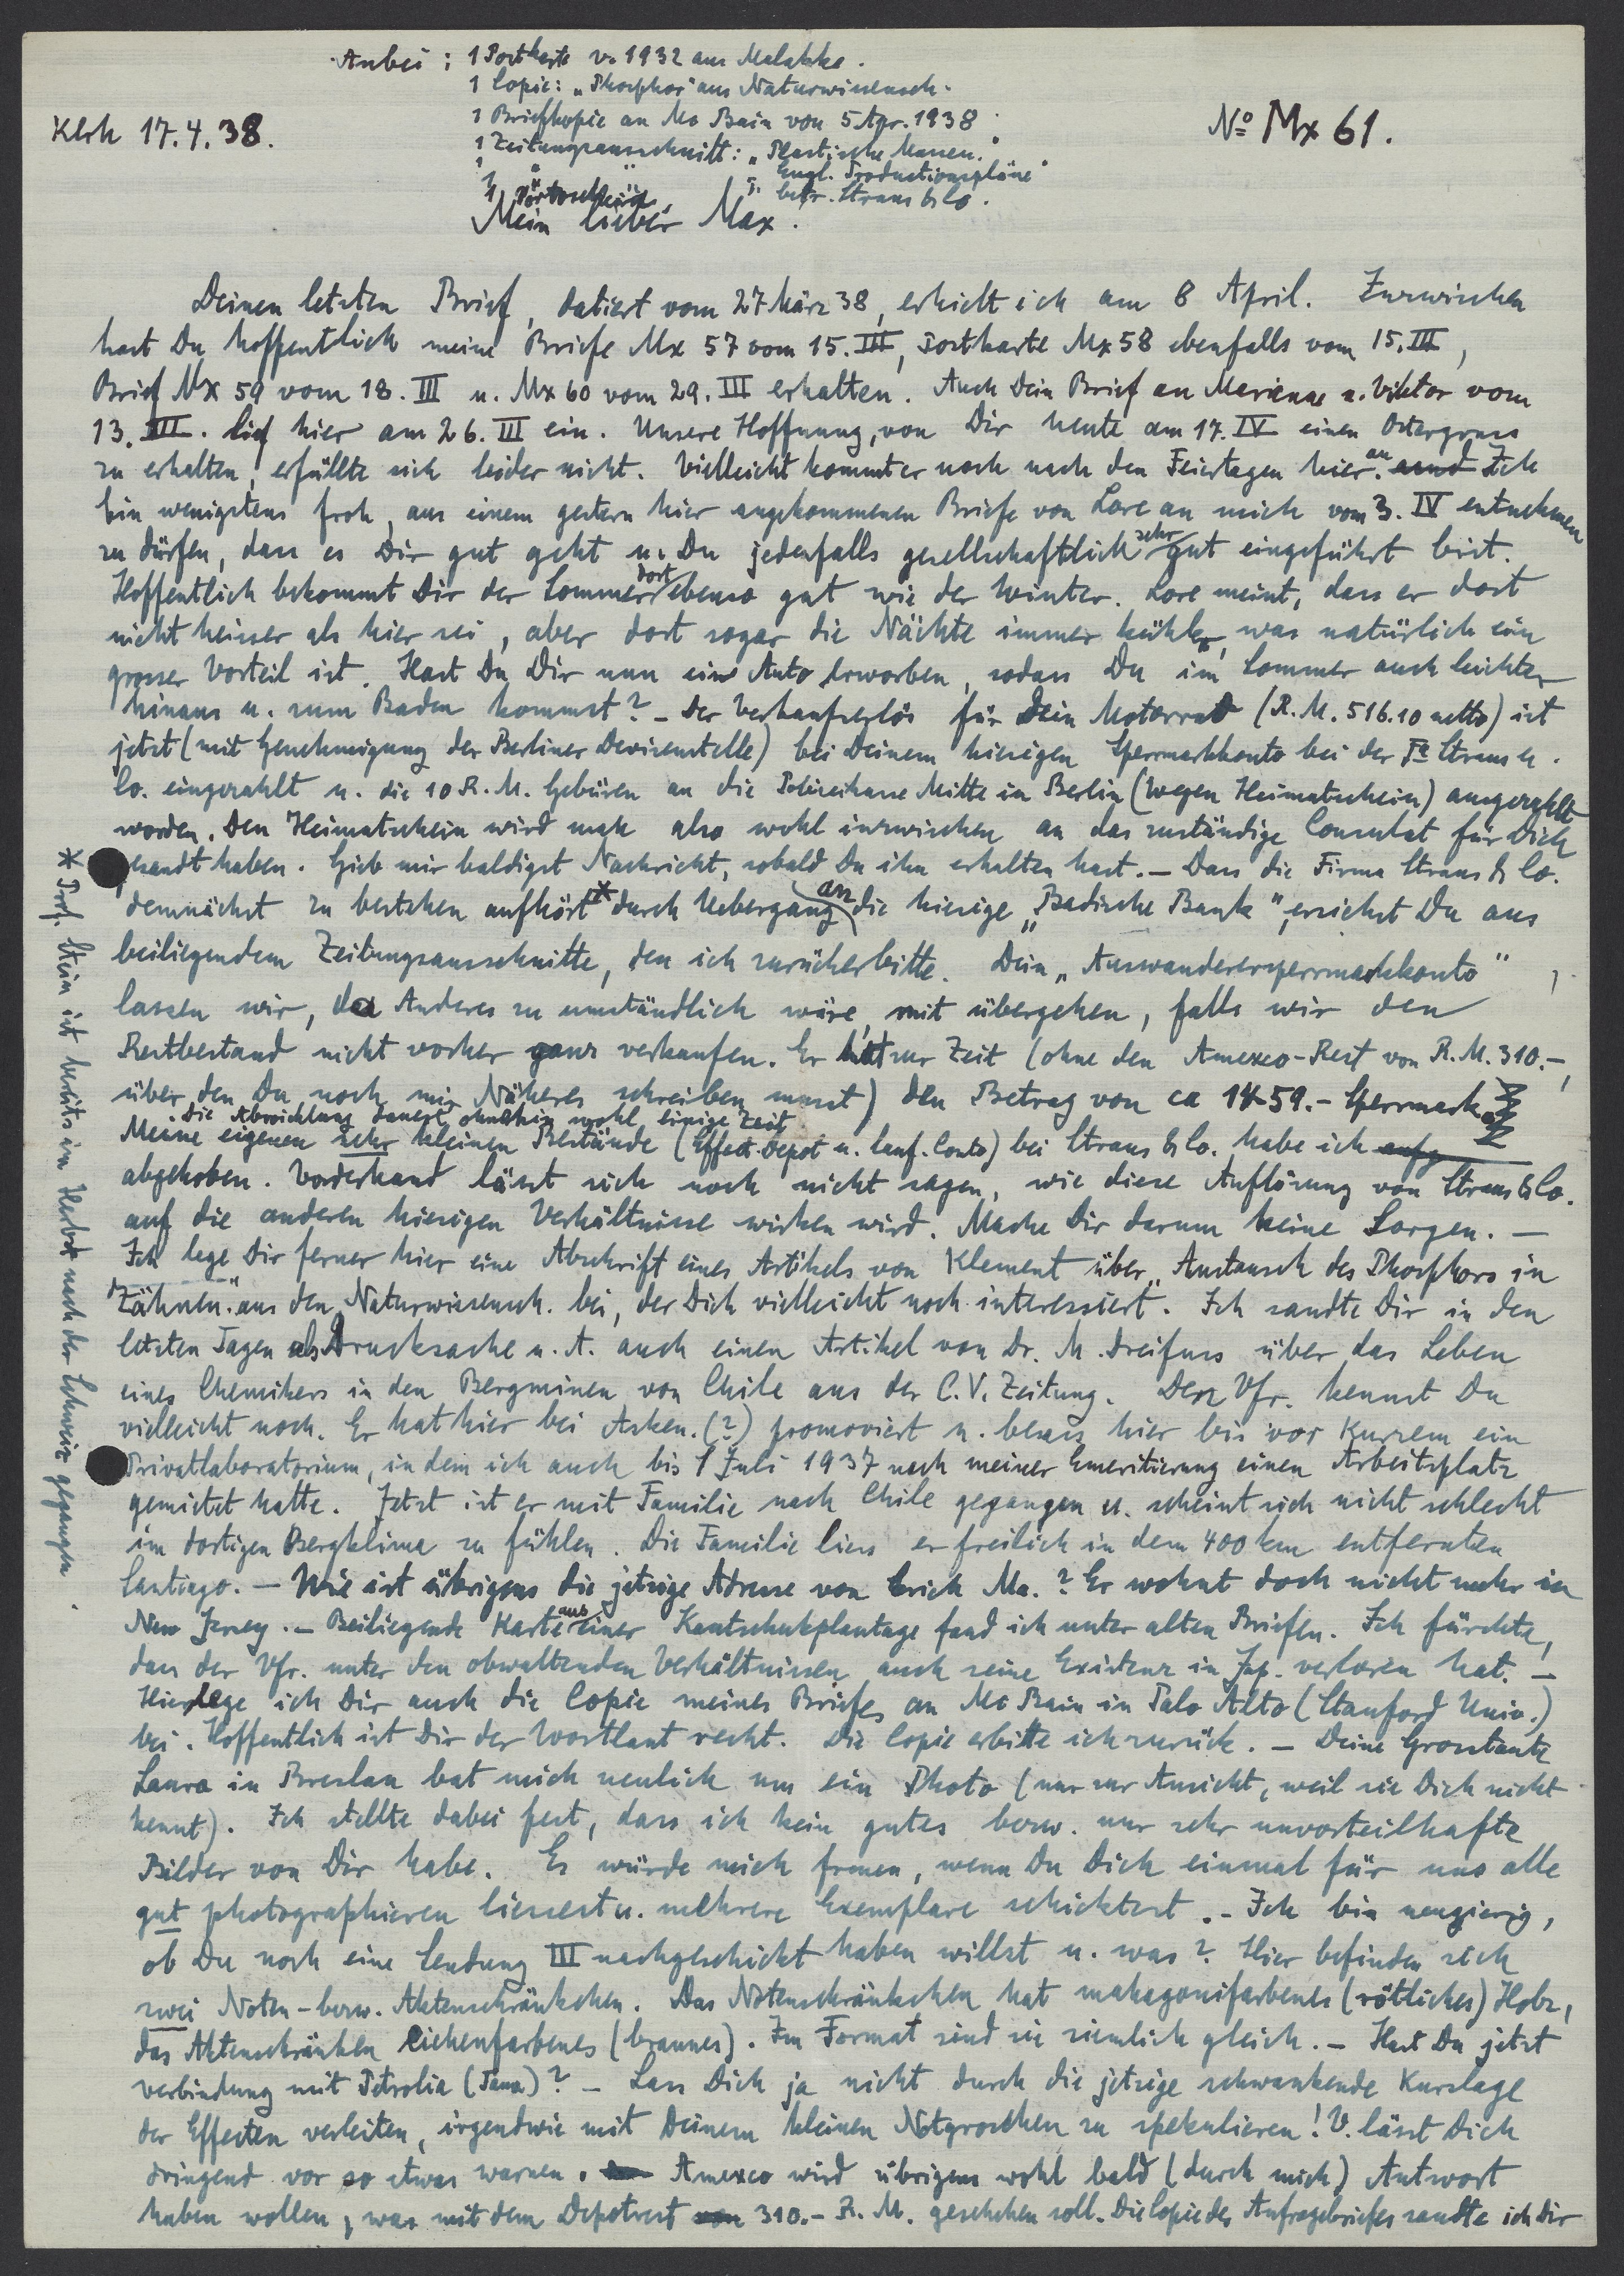 Anbei: 1 Postkarte v. 1932 aus Malakka.
1 Copie: „Phosphor" aus Naturwissensch.
1 Briefkopie an Mc Bain von 5 Apr. 1938
Klrh 17.4.38.
No Mx 61.
1 Zeitungsausschnitt: „Plastische Massen."
1 " " Engl. Productionspläne"
1 " " betr. Straus & Co.
Mein lieber Max.
Deinen letzten Brief, datiert vom 27 März 38, erhielt ich am 8 April. Inzwischen
hast Du hoffentlich meine Briefe Mx 57 vom 15. III, Postkarte Mx 58 ebenfalls vom 15. III,
Brief Mx 59 vom 18. III u. Mx 60 vom 29. III erhalten. Auch Dein Brief an Marianne u. Viktor vom
13. III. lief hier am 26. III ein. Unsere Hoffnung, von Dir heute am 17. IV einen Ostergruss
zu erhalten, erfüllte sich leider nicht. Vielleicht kommt er noch nach den Feiertagen hier an. Ich
bin wenigstens froh, aus einem gestern hier angekommenen Briefe von Lore an mich vom 3. IV entnehmen
zu dürfen, dass es Dir gut geht u. Du jedenfalls gesellschaftlich sehr gut eingeführt bist.
Hoffentlich bekommt Dir der Sommer dort ebenso gut wie der Winter. Lore meint, dass er dort
nicht heisser als hier sei, aber dort sogar die Nächte immer kühler, was natürlich ein
grosser Vorteil ist. Hast Du Dir nun ein Auto erworben, sodass Du im Sommer auch leichter
hinaus u. zum Baden kommst? – Der Verkaufserlös für Dein Motorrad (R.M. 516.10 netto) ist
jetzt (mit Genehmigung der Berliner Devisenstelle) bei Deinem hiesigen Sperrmarkkonto bei der Fa Straus u.
Co. eingezahlt u. die 10 R.M. Gebüren an die Polizeikasse Mitte in Berlin (wegen Heimatschein) ausgezahlt
worden. Den Heimatschein wird man also wohl inzwischen an das zuständige Consulat für Dich
gesandt haben. Gieb mir baldigst Nachricht, sobald Du ihn erhalten hast. – Dass die Firma Straus & Co.
demnächst zu bestehen aufhört * durch Uebergang an die hiesige „Badische Bank", ersiehst Du aus
beiliegendem Zeitungsausschnitte, den ich zurückerbitte. Dein „Auswanderersperrmarkkonto"
lassen wir, da Anderes zu umständlich wäre, mit übergehen, falls wir den
Restbestand nicht vorher ganz verkaufen. Er hat zur Zeit (ohne den Amexco-Rest von R.M. 310.–,
über den Du noch mir Näheres schreiben musst) den Betrag von ca 1459.– Sperrmark.
Die Abwicklung dauert ohnehin wohl einige Zeit
Meine eigenen sehr kleinen Bestände (Effect. Depot u. lauf. Conto) bei Straus & Co. habe ich aufg
abgehoben. Vorderhand lässt sich noch nicht sagen, wie diese Auflösung von Straus & Co.
auf die anderen hiesigen Verhältnisse wirken wird. Mache Dir darum keine Sorgen. –
Ich lege Dir ferner hier eine Abschrift eines Artikels von Klement über „Austausch des Phosphors in
Zähnen" aus den Naturwissensch. bei, der Dich vielleicht noch interessiert. Ich sandte Dir in den
letzten Tagen als Drucksache u. A. auch einen Artikel von Dr. M. Dreifuss über das Leben
eines Chemikers in den Bergminen von Chile aus der C.V. Zeitung. Den Vfr. kennst Du
vielleicht noch. Er hat hier bei Asken. (?) promoviert u. besass hier bis vor Kurzem ein
Privatlaboratorium, in dem ich auch bis 1 Juli 1937 nach meiner Emeritierung einen Arbeitsplatz
gemietet hatte. Jetzt ist er mit Familie nach Chile gegangen u. scheint sich nicht schlecht
im dortigen Bergklima zu fühlen. Die Familie liess er freilich in dem 400 km entfernten
Santiago. – Wie ist übrigens die jetzige Adresse von Erich Ma.? Er wohnt doch nicht mehr in
New Jersey. – Beiliegende Karte aus einer Kautschukplantage fand ich unter alten Briefen. Ich fürchte,
dass der Vfr. unter den obwaltenden Verhältnissen auch seine Existenz in Jap. verloren hat. –
Hier lege ich Dir auch die Copie meines Briefes an Mc Bain in Palo Alto (Stanford Univ.)
bei. Hoffentlich ist Dir der Wortlaut recht. Die Copie erbitte ich zurück. – Deine Grosstante
Laura in Breslau bat mich neulich um ein Photo (nur zur Ansicht, weil sie Dich nicht
kennt). Ich stellte dabei fest, dass ich kein gutes bezw. nur sehr unvorteilhafte
Bilder von Dir habe. Es würde mich freuen, wenn Du Dich einmal für uns alle
gut photographieren liessest u. mehrere Exemplare schicktest. – Ich bin neugierig,
ob Du noch eine Sendung III nachgeschickt haben willst u. was? Hier befinden sich
zwei Noten-bezw. Aktenschränkchen. Das Notenschränkchen hat mahagonifarbenes (rötliches) Holz,
das Aktenschränken eichenfarbenes (braunes). Im Format sind sie ziemlich gleich. – Hast Du jetzt
Verbindung mit Petrolia (Tama)? – Lass Dich ja nicht durch die jetzige schwankende Kurslage
der Effecten verleiten, irgendwie mit Deinem kleinen Notgroschen zu spekulieren! V. lässt Dich
dringend vor so etwas warnen. Amexco wird übrigens wohl bald (durch mich) Antwort
haben wollen, was mit dem Depotrest von 310.– R.M. geschehen soll. Die Copie des Anfragebriefes sandte ich Dir
* Prof. Stein ist bereits im Herbst nach der Schweiz gegangen.